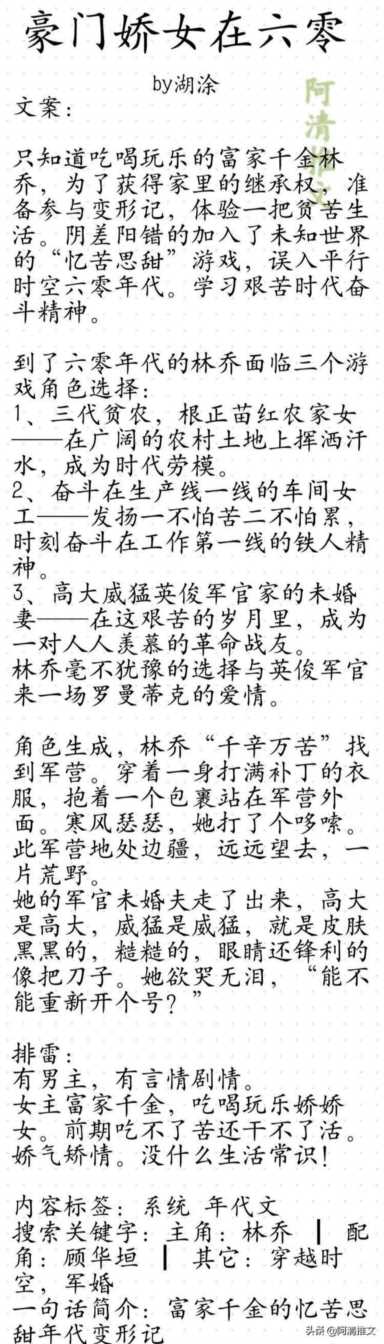 豪门娇女在六零
by湖涂
文案：
阿清推文
只知道吃喝玩乐的富家千金林
乔，为了获得家里的继承权，准
备参与变形记，体验一把贫苦生
活。阴差阳错的加入了未知世界
的“忆苦思甜”游戏，误入平行
时空六零年代。学习艰苦时代奋
斗精神。
到了六零年代的林乔面临三个游
戏角色选择：
1、三代贫农，根正苗红农家女
——在广阔的农村土地上挥洒汗
水，成为时代劳模。
2、奋斗在生产线一线的车间女
工——发扬一不怕苦二不怕累，
时刻奋斗在工作第一线的铁人精
神。
3、高大威猛英俊军官家的未婚
妻——在这艰苦的岁月里，成为
一对人人羡慕的革命战友。
林乔毫不犹豫的选择与英俊军官
来一场罗曼蒂克的爱情。
角色生成，林乔“千辛万苦”找
到军营。穿着一身打满补丁的衣
服，抱着一个包裹站在军营外
面。寒风瑟瑟，她打了个哆嗦。
此军营地处边疆，远远望去，一
片荒野。
她的军官未婚夫走了出来，高大
是高大，威猛是威猛，就是皮肤
黑黑的，糙糙的，眼睛还锋利的
像把刀子。她欲哭无泪，“能不
能重新开个号？”
排雷：
有男主，有言情剧情。
女主富家千金，吃喝玩乐娇娇
女。前期吃不了苦还干不了活。
娇气矫情。没什么生活常识！
内容标签：系统 年代文
搜索关键字：主角：林乔 ┃ 配
角：顾华垣 ┃ 其它：穿越时
空，军婚
一句话简介：富家千金的忆苦思
甜年代变形记
头条 @阿清推文